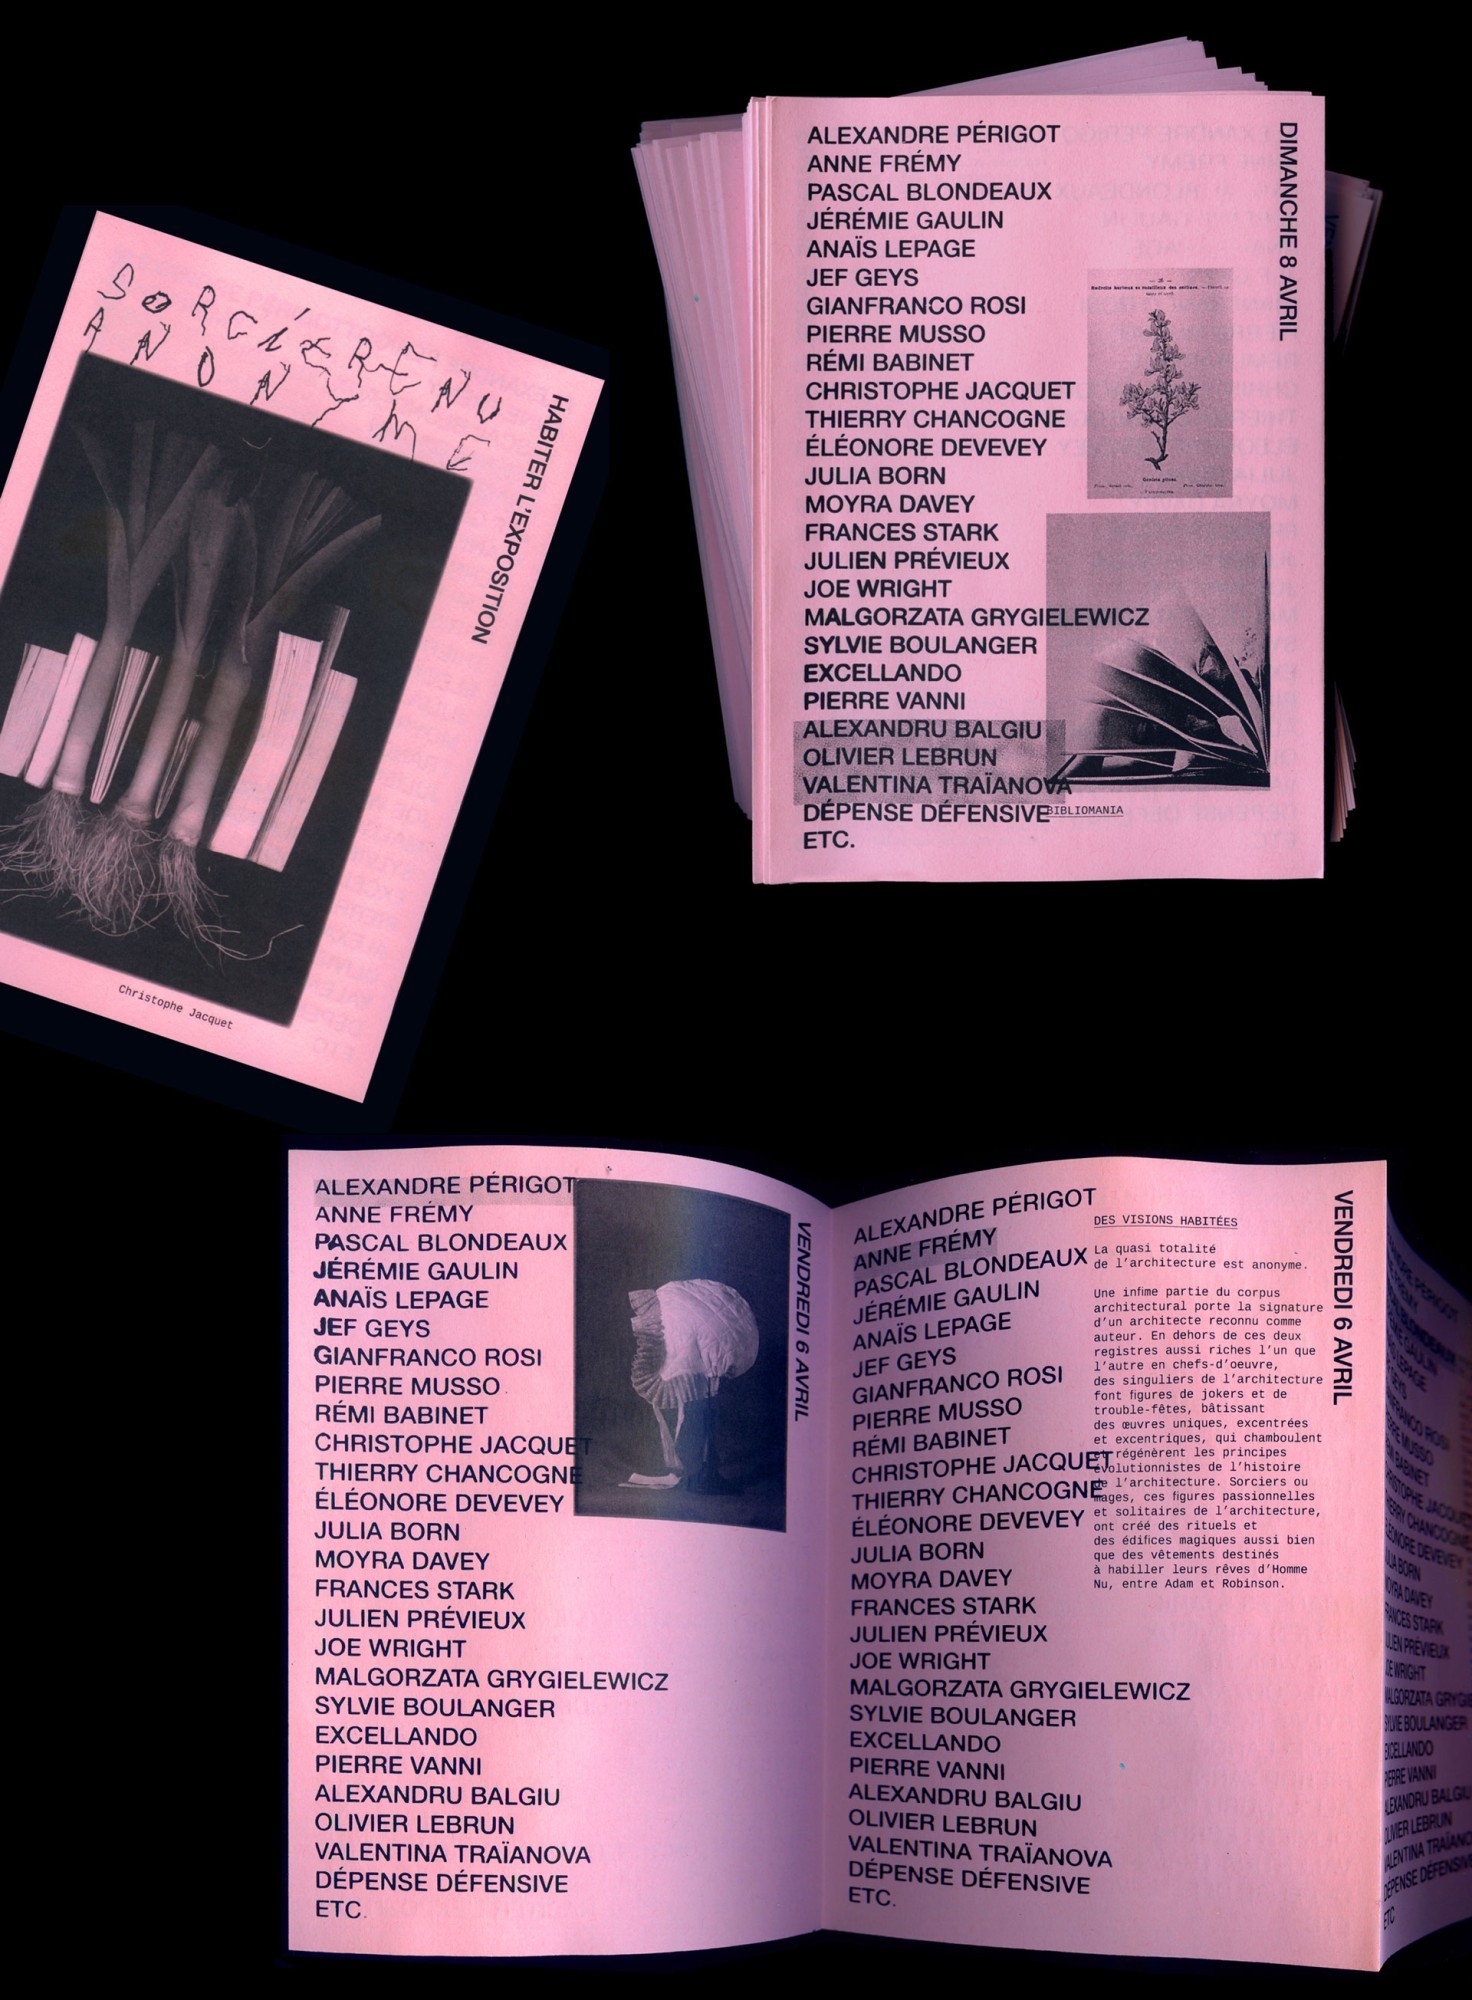 SORCIÈRE NU
ANONYME
HABITER L'EXPOSITION
Christophe Jacquet
ALEXANDRE PÉRIGOT
ANNE FRÉMY
PASCAL BLONDEAUX
JÉRÉMIE GAULIN
ANAÏS LEPAGE
JEF GEYS
GIANFRANCO ROSI
PIERRE MUSSO
RÉMI BABINET
CHRISTOPHE JACQUET
THIERRY CHANCOGNE
ÉLÉONORE DEVEVEY
JULIA BORN
MOYRA DAVEY
FRANCES STARK
JULIEN PRÉVIEUX
JOE WRIGHT
MALGORZATA GRYGIELEWICZ
SYLVIE BOULANGER
EXCELLANDO
PIERRE VANNI
ALEXANDRU BALGIU
OLIVIER LEBRUN
VALENTINA TRAÏANOVA
DÉPENSE DÉFENSIVE
ETC.
BIBLIOMANIA
DIMANCHE 8 AVRIL
ALEXANDRE PÉRIGOT
ANNE FRÉMY
PASCAL BLONDEAUX
JÉRÉMIE GAULIN
ANAÏS LEPAGE
JEF GEYS
GIANFRANCO ROSI
PIERRE MUSSO
RÉMI BABINET
CHRISTOPHE JACQUET
THIERRY CHANCOGNE
ÉLÉONORE DEVEVEY
JULIA BORN
MOYRA DAVEY
FRANCES STARK
JULIEN PRÉVIEUX
JOE WRIGHT
MALGORZATA GRYGIELEWICZ
SYLVIE BOULANGER
EXCELLANDO
PIERRE VANNI
ALEXANDRU BALGIU
OLIVIER LEBRUN
VALENTINA TRAÏANOVA
DÉPENSE DÉFENSIVE
ETC.
VENDREDI 6 AVRIL
ALEXANDRE PÉRIGOT
ANNE FRÉMY
PASCAL BLONDEAUX
JÉRÉMIE GAULIN
ANAÏS LEPAGE
JEF GEYS
GIANFRANCO ROSI
PIERRE MUSSO
RÉMI BABINET
CHRISTOPHE JACQUET
THIERRY CHANCOGNE
ÉLÉONORE DEVEVEY
JULIA BORN
MOYRA DAVEY
FRANCES STARK
JULIEN PRÉVIEUX
JOE WRIGHT
MALGORZATA GRYGIELEWICZ
SYLVIE BOULANGER
EXCELLANDO
PIERRE VANNI
ALEXANDRU BALGIU
OLIVIER LEBRUN
VALENTINA TRAÏANOVA
DÉPENSE DÉFENSIVE
ETC.
DES VISIONS HABITÉES
La quasi totalité
de l'architecture est anonyme.
Une infime partie du corpus
architectural porte la signature
d'un architecte reconnu comme
auteur. En dehors de ces deux
registres aussi riches l'un que
l'autre en chefs-d'oeuvre,
des singuliers de l'architecture
font figures de jokers et de
trouble-fêtes, bâtissant
des œuvres uniques, excentrées
et excentriques, qui chamboulent
et régénèrent les principes
évolutionnistes de l'histoire
de l'architecture. Sorciers ou
mages, ces figures passionnelles
et solitaires de l'architecture,
ont créé des rituels et
des édifices magiques aussi bien
que des vêtements destinés
à habiller leurs rêves d'Homme
Nu, entre Adam et Robinson.
VENDREDI 6 AVRIL